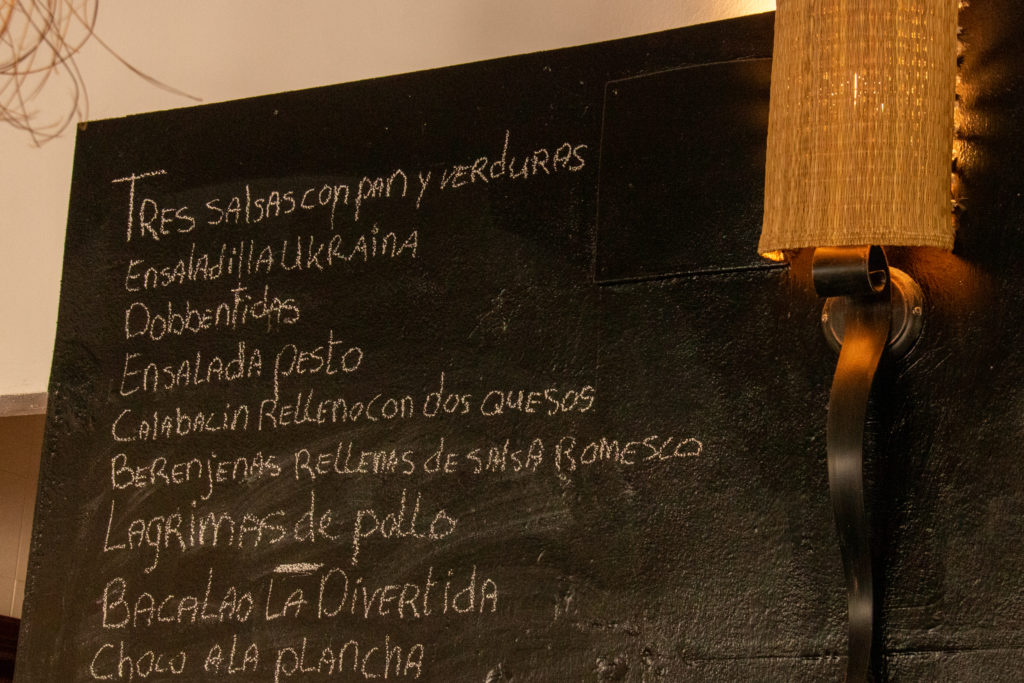 TRES SALSAS con pan y VERDURAS
Ensaladilla UKRAINA
Dobbentidas
ENSALADA pesto
Calabacin Relleno con dos QUESOS
BERENJENAS RELLENAS de SALSA ROMESCO
LAGRIMAS de pollo
BACALAO LA DIVERTIDA
Choco A LA plancha